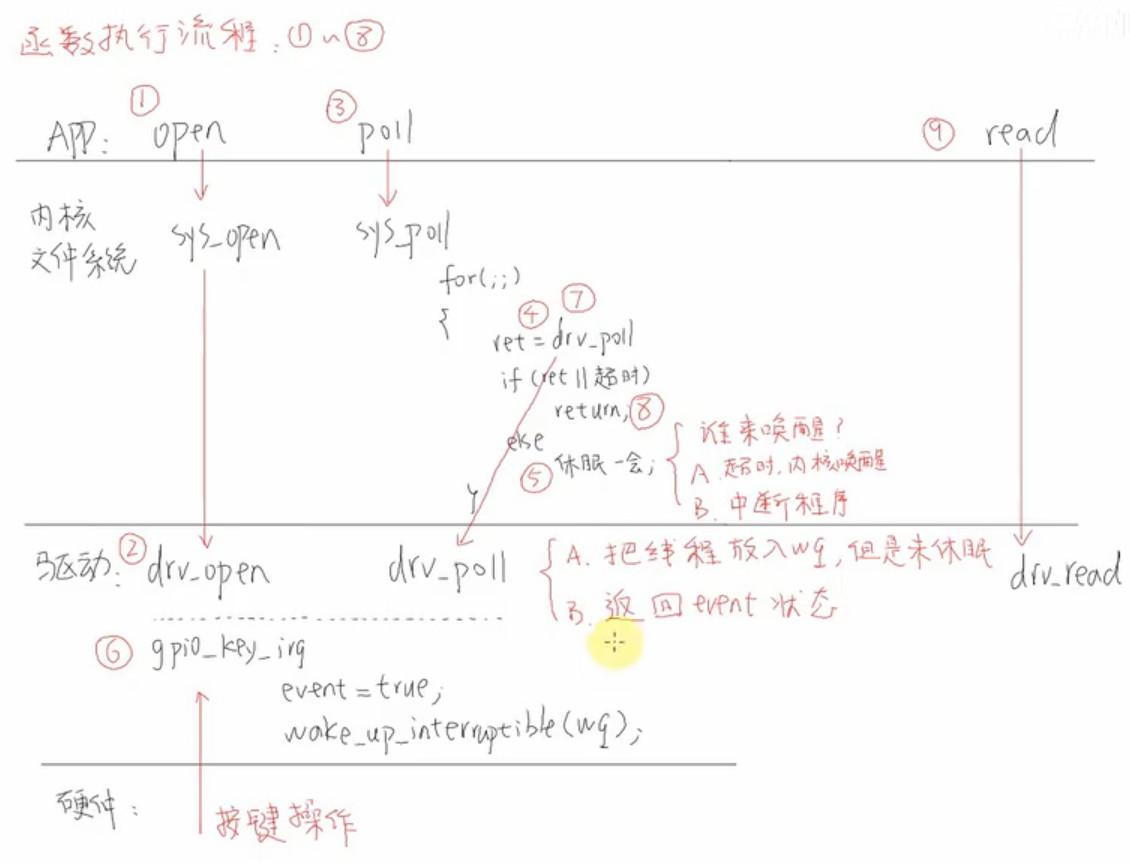 函数执行流程：①~⑧
① ③ ⑨
APP： open poll read
内核
文件系统
sys_open sys_poll
for(;;)
{
④ ⑦
ret = drv_poll
if (ret || 超时)
return; ⑧
else
⑤ 休眠一会;
谁来唤醒?
A. 超时,内核唤醒
B. 中断程序
驱动： ② drv_open drv_poll drv_read
A. 把线程放入wq,但是未休眠
B. 返回event 状态
⑥ gpio_key_irq
event = true;
wake_up_interruptible(wq);
硬件：
按键操作